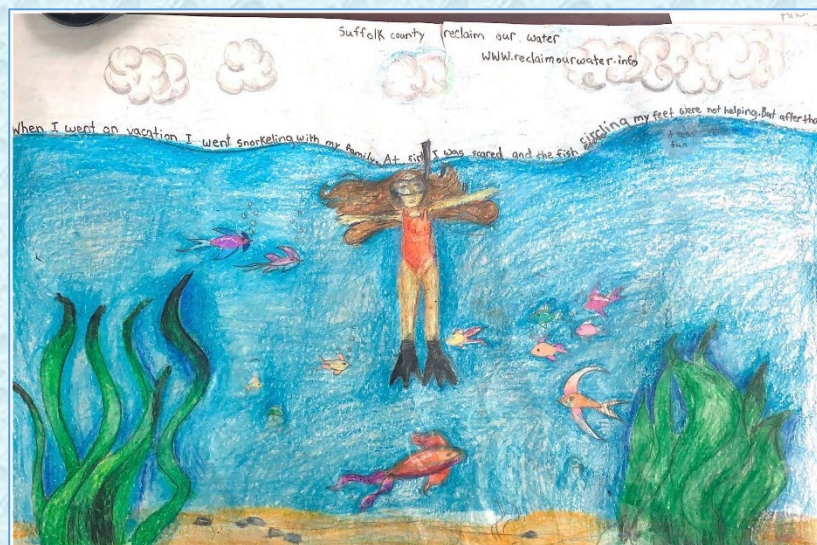 Suffolk county reclaim our water
www.reclaimourwater.info
When I went on vacation I went snorkeling with my family. At first I was scared and the fish circling my feet were not helping. But after that
it was
fun